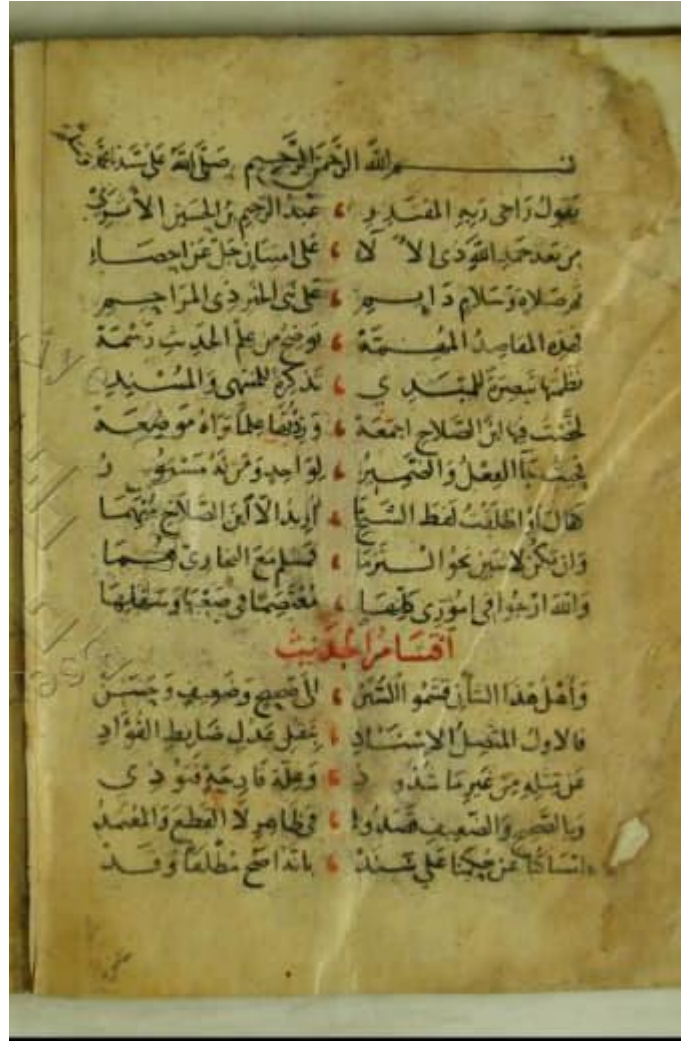 بسم الله الرحمن الرحيم صلى الله على سيدنا محمد
يقول راجي ربه المقتدر ، عبد الرحيم بن الحسين الأثري
من بعد حمد الله ذي الآلاء ، على امتنان جل عن احصاء
ثم صلاة وسلام دايم ، على نبي الخير ذي المراحم
فهذه المقاصد المهمة ، توضح من علم الحديث رسمه
نظمتها تبصرة للمبتدي ، تذكرة للمنتهي والمسند
لخصت فيها ابن الصلاح اجمعه ، وزدتها علما تراه موضعه
فحيث جا الفعل والضمير ، لواحد ومن له مستور
كقال او اطلقت لفظ الشيخ ما ، اريد الا ابن الصلاح مبهما
وان تكن لاثنين نحو التزما ، فمسلم مع البخاري هما
والله ارجوا في اموري كلها ، معتصما في صعبها وسهلها
أقسام الحديث
وأهل هذا الشأن قسموا السنن ، الى صحيح وضعيف وحسن
فالاول المتصل الاسناد ، بنقل عدل ضابط الفؤاد
عن مثله من غير ما شذوذ ، وعلة قادحة فتوذي
وبالصحيح والضعيف قصدوا ، في ظاهر لا القطع والمعتمد
امساكنا عن حكمنا على سند ، بانه اصح مطلقا وقد